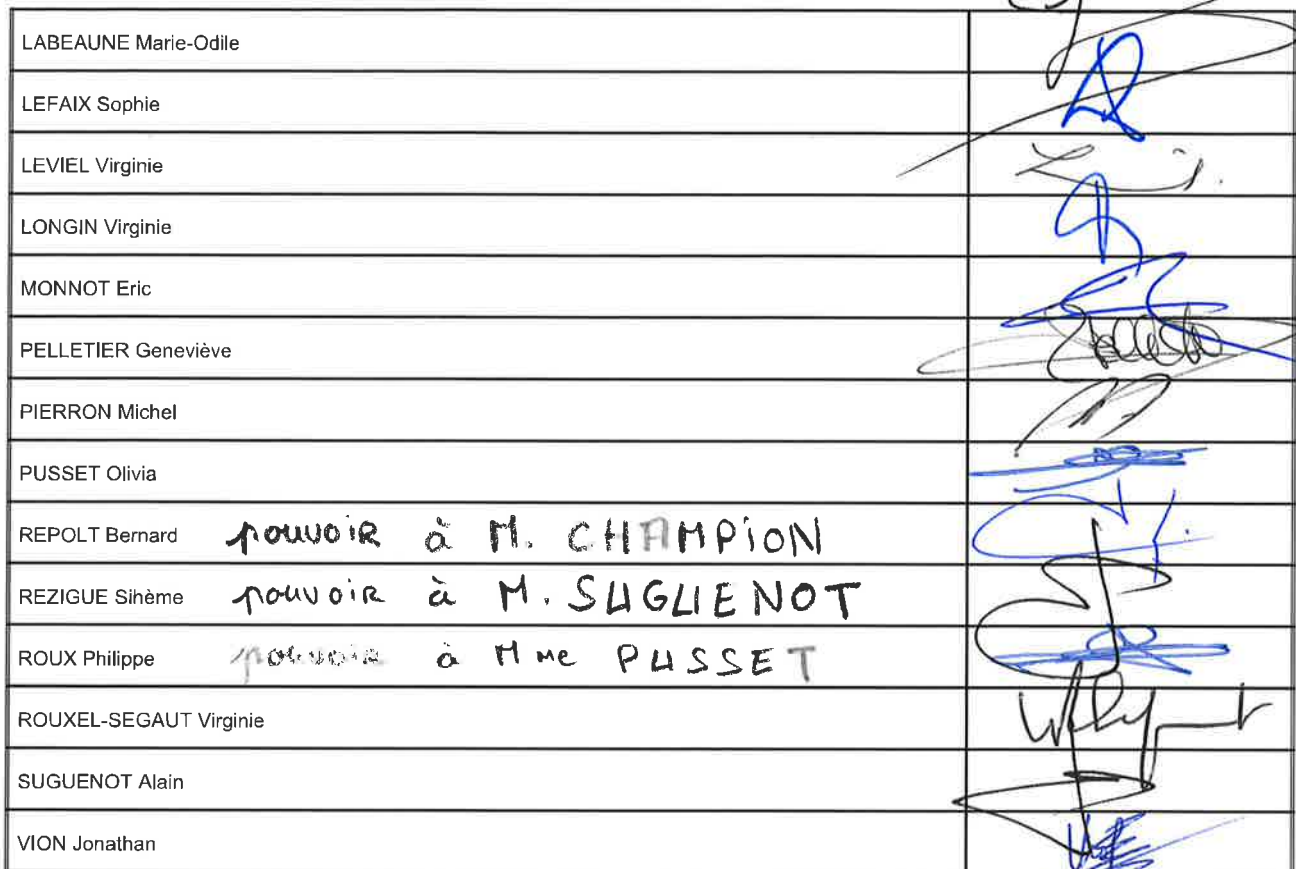 LABEAUNE Marie-Odile
LEFAIX Sophie
LEVIEL Virginie
LONGIN Virginie
MONNOT Eric
PELLETIER Geneviève
PIERRON Michel
PUSSET Olivia
REPOLT Bernard pouvoir à M. CHAMPiON
REZIGUE Sihème pouvoir à M. SUGUENOT
ROUX Philippe pouvoir à Mme PUSSET
ROUXEL-SEGAUT Virginie
SUGUENOT Alain
VION Jonathan